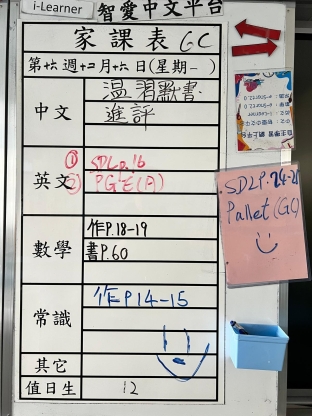 i-Learner 智愛中文平台
家課表 6C
第十六週十二月十六日(星期一)
中文
溫習默書
進評
英文
① SDLp.16
② PGE(A)
數學
作P.18-19
書P.60
常識
作P14-15
其它
值日生
12
SDLP.24-25
Pallet(GC)